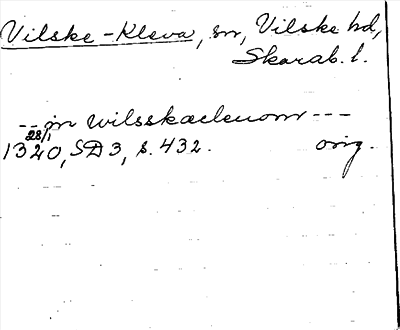 Vilske-Kleva, sn, Vilske hd,
Skarab. l.
-- in wilsskaclenom ---
28/1
1320, SD 3, s. 432. orig.